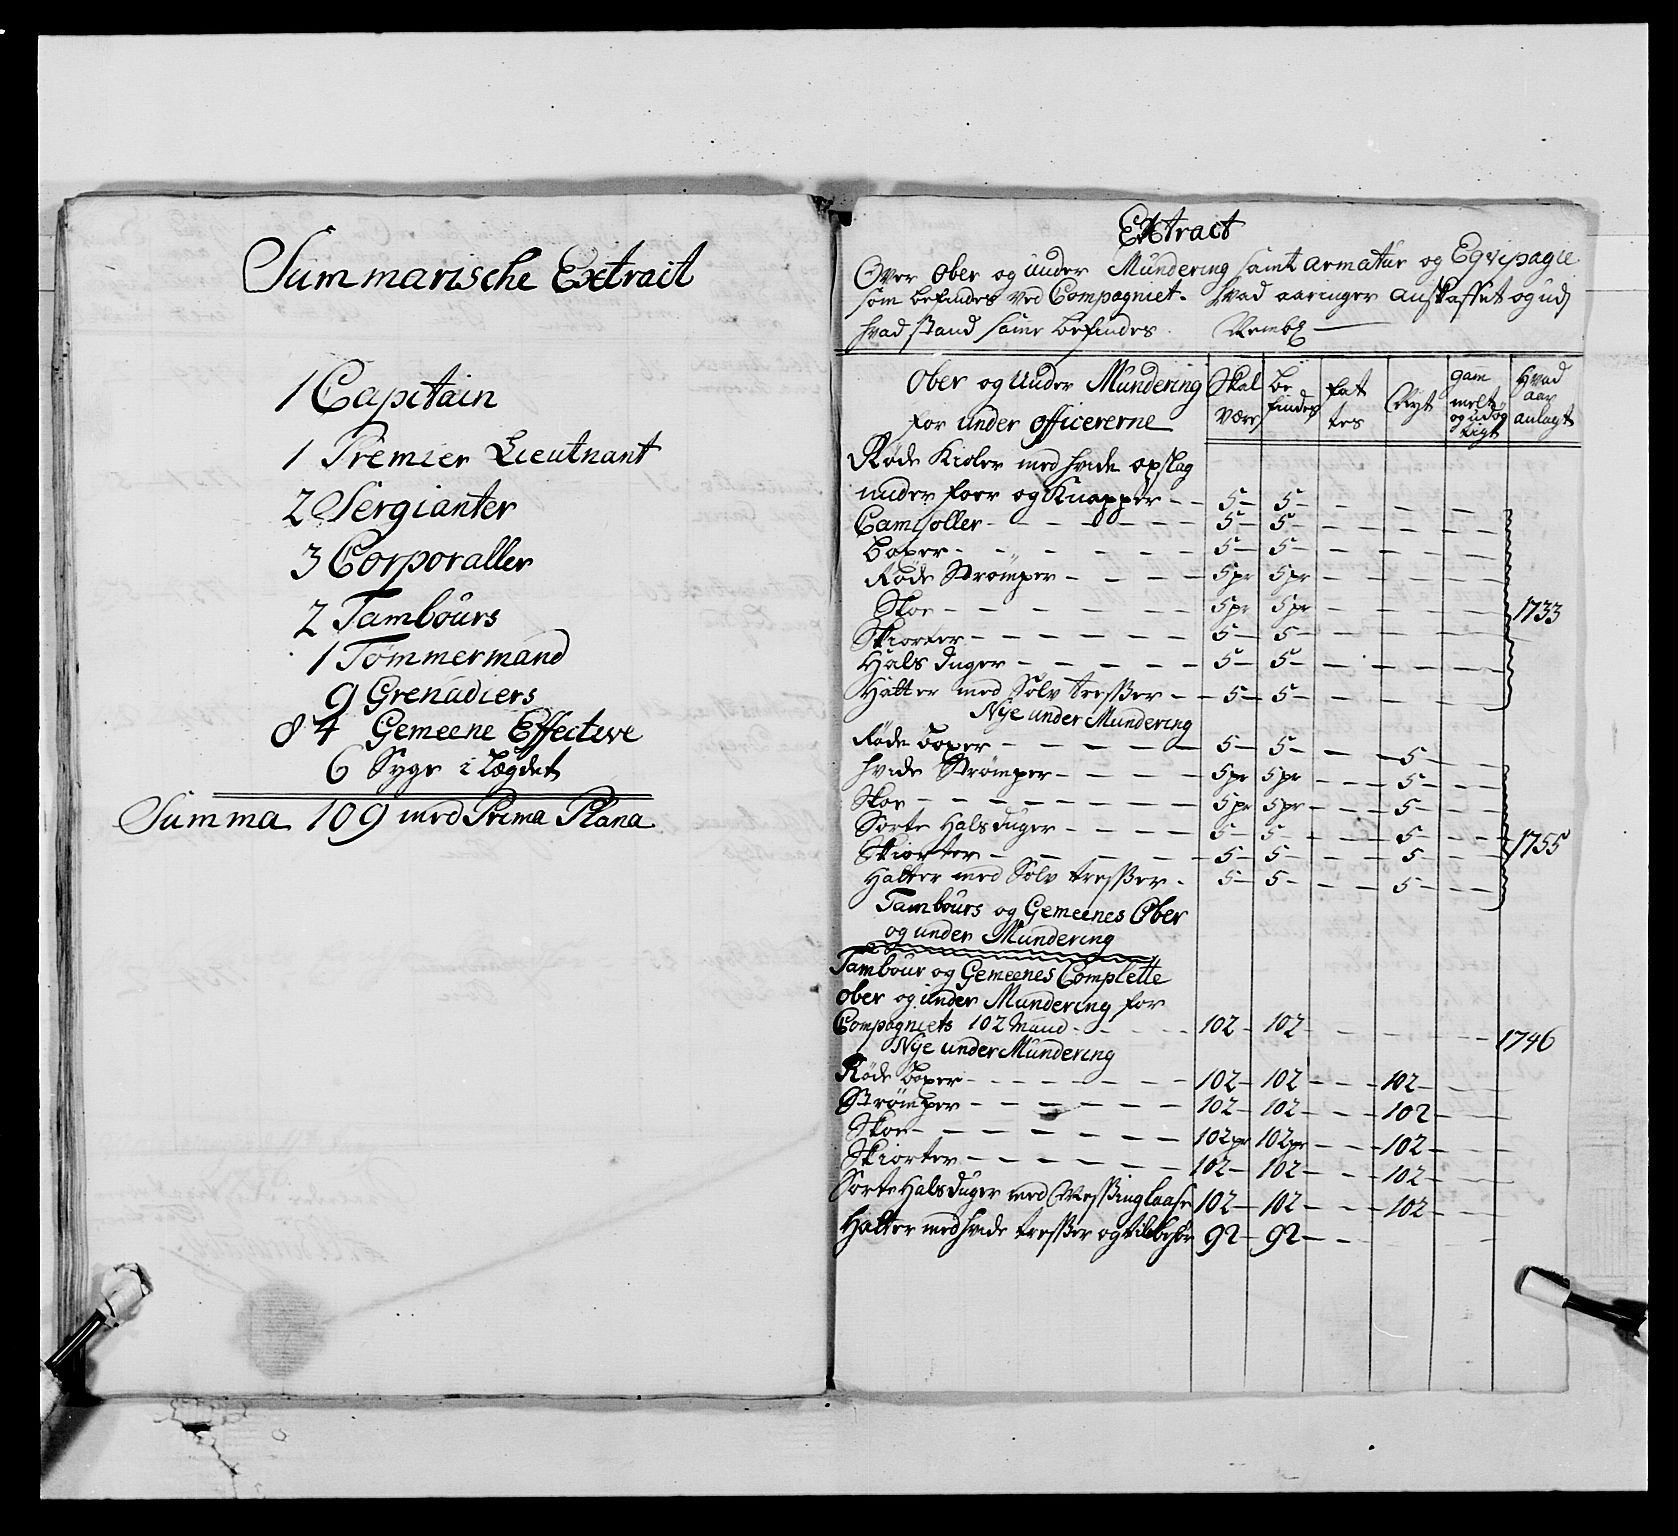 Summarische Extract
1 Capitain
1 Premier Lieutnant
2 Sergianter
3 Corporaller
2 Tambours
1 Tømmermand
9 Grenadiers
84 Gemeene Effective
6 Syge i Lægdet
Summa 109 med Prima Plana
Extract
Over Ober og Under Mundering samt armatur og Eqvipagie
som befindes ved Compagniet. hvad aaringer anskaffet og udj
hvad stand samme befindes
Ober og Under Mundering Skal be fat Nyt gam Hvad
for under officererne være findes tes melt og udøg tigt aar anlagt
Røde Kioler med hvide opslag
under foer og Knapper - - 5 - 5 - - - -
Camisoller - - - - 5 - 5 - - - -
boxer - - - - 5 - 5 - - - -
Røde Strømper - - - - 5 pr 5 pr - - - -
Skoe - - - - 5 pr 5 pr - - - - 1733
Skiorter - - - - 5 - 5 - - - -
Hals Duger - - - - 5 - 5 - - - -
Hatter med Sølv tresser - - 5 - 5 - - - -
Nye under Mundering
Røde boxer - - - - 5 - 5 - - 5 -
hvide Strømper - - - - 5 pr 5 pr - - 5 - - -
Skoe - - - - 5 pr 5 pr - - 5 - - -
Sorte Hals duger - - - - 5 - 5 - - 5 - - - 1755
Skiorter - - - - 5 - 5 - - 5 - - -
Hatter med Sølv tresser - 5 - 5 - - - 5 - - -
Tambours og Gemeenes Ober
og under Mundering
Tambour og Gemeenes Complette
ober og under Mundering for
Compagniets 102 Mand - - - 102 - 102 - - - - 1746
Nye under Mundering
Røde boxer - - - - 102 - 102 - - - 102 - - -
Strømper - - - - 102 - 102 - - - 102 - - -
Skoe - - - - 102 pr 102 pr - - - 102 - - -
Skiorter - - - - 102 - 102 - - - 102 - - -
Sorte Hals duger med Messing laase 102 - 102 - - - 102 - - -
Hatter med hvide tresser og tilbehør 92 - 92 - - -